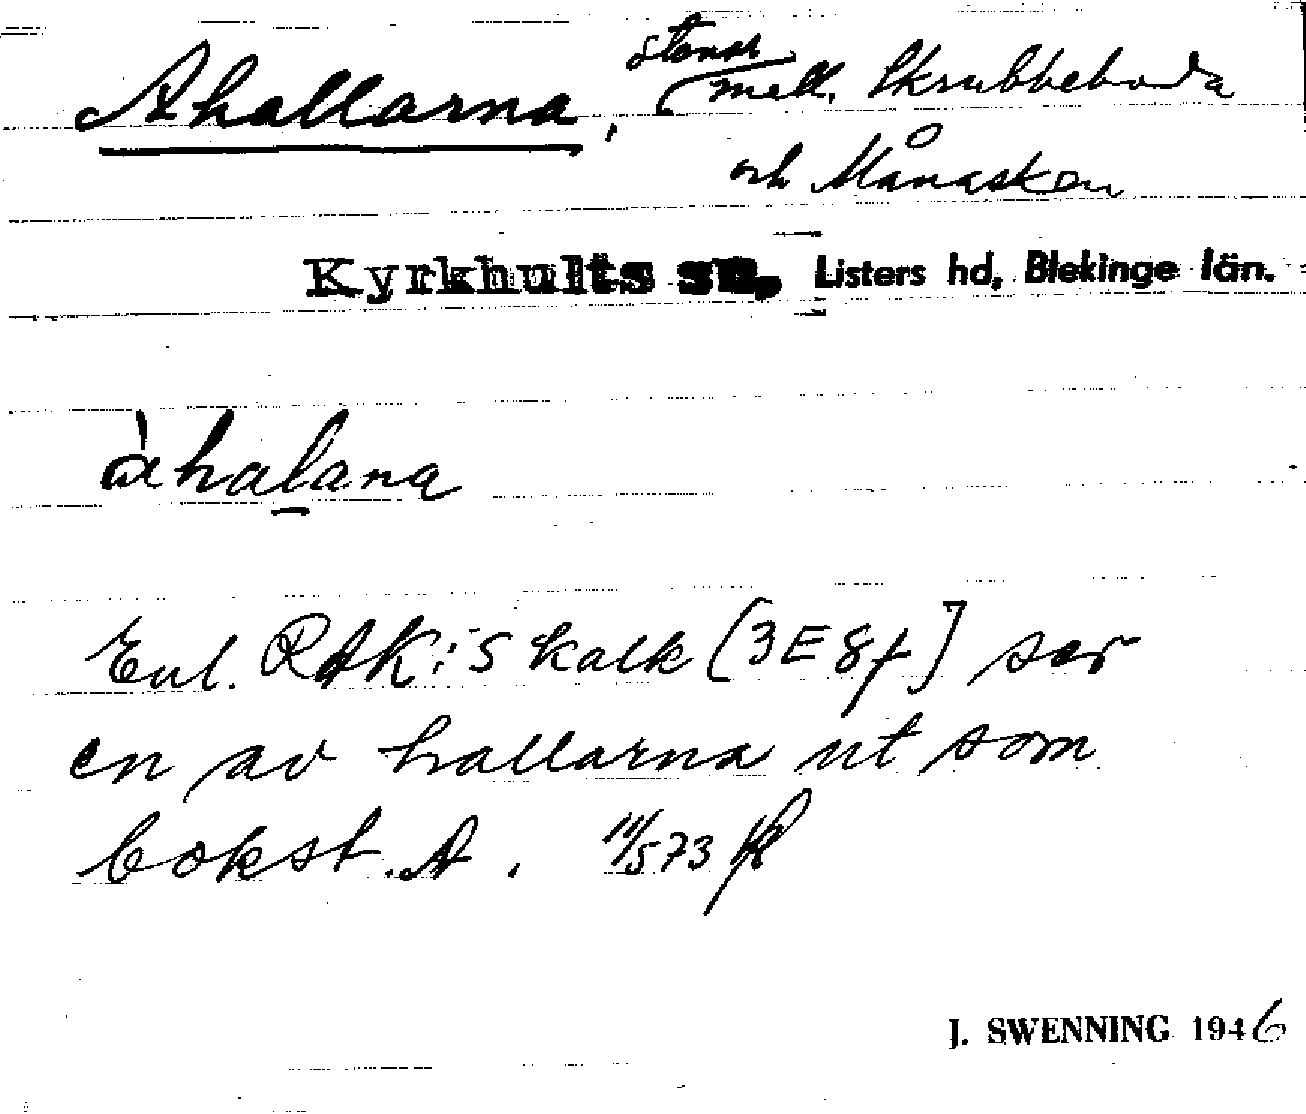 Ahallarna, stenar mell. Skrubbeboda
och Månasken
Kyrkhults sn, Listers hd, Blekinge län.
àhalana
Enl. RAK:s kalk [3E8f] ser
en av hallarna ut som
bokst. A. 14/5 73
J. SWENNING 1946